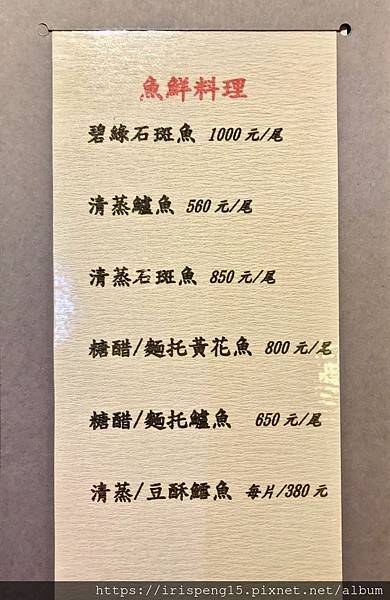 魚鮮料理
碧綠石斑魚 1000元/尾
清蒸鱸魚 560元/尾
清蒸石斑魚 850元/尾
糖醋/麵托黃花魚 800元/尾
糖醋/麵托鱸魚 650元/尾
清蒸/豆酥鱈魚 每片/380元
https://irispeng15.pixnet.net/album